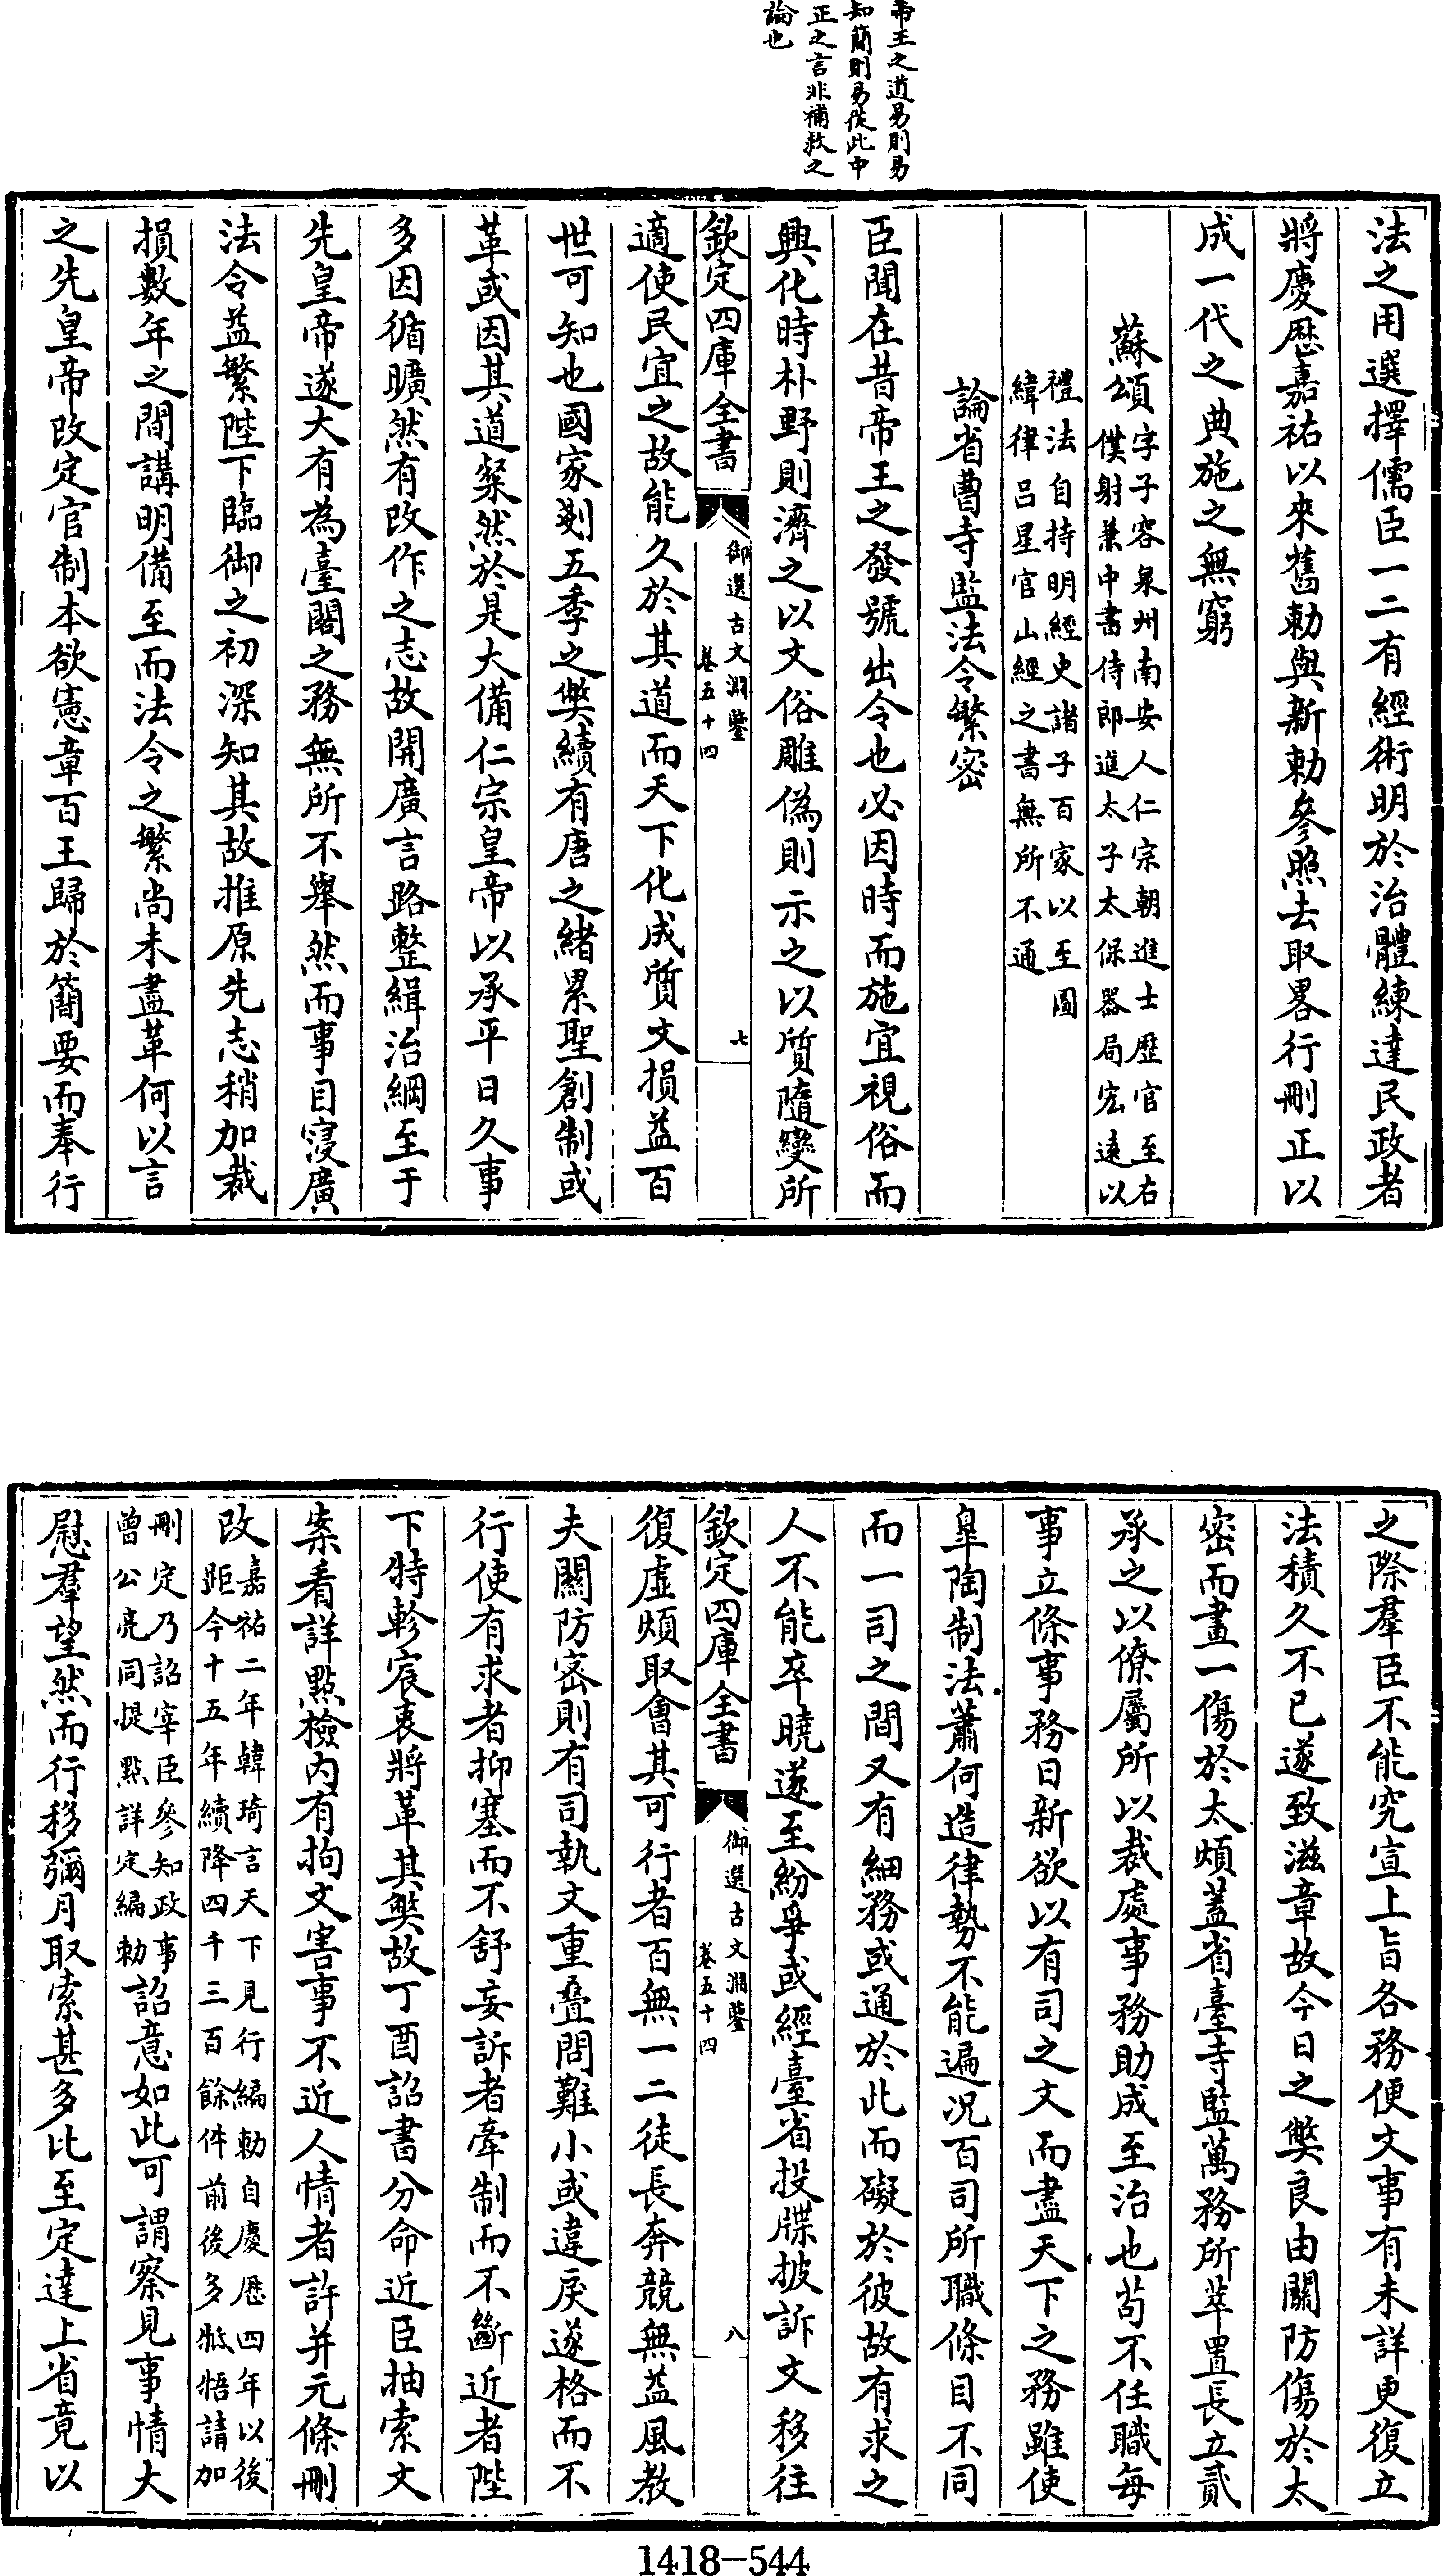 帝王之道易則易
知簡則易從此中
正之言非補救之
論也
法之用選擇儒臣一二有經術明於治體練達民政者
將慶歴嘉祐以來舊勅與新勅參照去取畧行刪正以
成一代之典施之無窮
蘇頌字子容泉州南安人仁宗朝進士歴官至右
僕射兼中書侍郎進太子太保器局宏遠以
禮法自持明經史諸子百家以至圖
緯律呂星官山經之書無所不通
論省曹寺監法令繁密
臣聞在昔帝王之發號出令也必因時而施宜視俗而
興化時朴野則濟之以文俗雕偽則示之以質隨變所
欽定四庫全書
御選古文淵鑒
卷五十四
七
適使民宜之故能久於其道而天下化成質文損益百
世可知也國家剗五季之獘續有唐之緒累聖創制或
革或因其道粲然於是大備仁宗皇帝以承平日久事
多因循曠然有改作之志故開廣言路整緝治綱至于
先皇帝遂大有為臺閣之務無所不舉然而事目寖廣
法令益繁陛下臨御之初深知其故推原先志稍加裁
損數年之間講明備至而法令之繁尚未盡革何以言
之先皇帝改定官制本欲憲章百王歸於簡要而奉行
之際羣臣不能究宣上旨各務便文事有未詳更復立
法積久不已遂致滋章故今日之獘良由關防傷於太
密而畫一傷於太煩蓋省臺寺監萬務所萃置長立貳
承之以僚屬所以裁處事務助成至治也茍不任職每
事立條事務日新欲以有司之文而盡天下之務雖使
臯陶制法蕭何造律勢不能遍况百司所職條目不同
而一司之間又有細務或通於此而礙於彼故有求之
人不能卒曉遂至紛爭或經臺省投牒披訴文移往
欽定四庫全書
御選古文淵鑒
卷五十四
八
復虛煩取會其可行者百無一二徒長奔競無益風教
夫關防密則有司執文重疊問難小或違戾遂格而不
行使有求者抑塞而不舒妄訴者牽制而不斷近者陛
下特軫宸衷將革其獘故丁酉詔書分命近臣抽索文
案看詳點檢內有拘文害事不近人情者許并元條刪
改嘉祐二年韓琦言天下見行編勅自慶歴四年以後
距今十五年續降四千三百餘件前後多牴牾請加
刪定乃詔宰臣參知政事
曾公亮同提㸃詳定編勅詔意如此可謂察見事情大
慰羣望然而行移彌月取索甚多比至定達上省竟以
1418-544